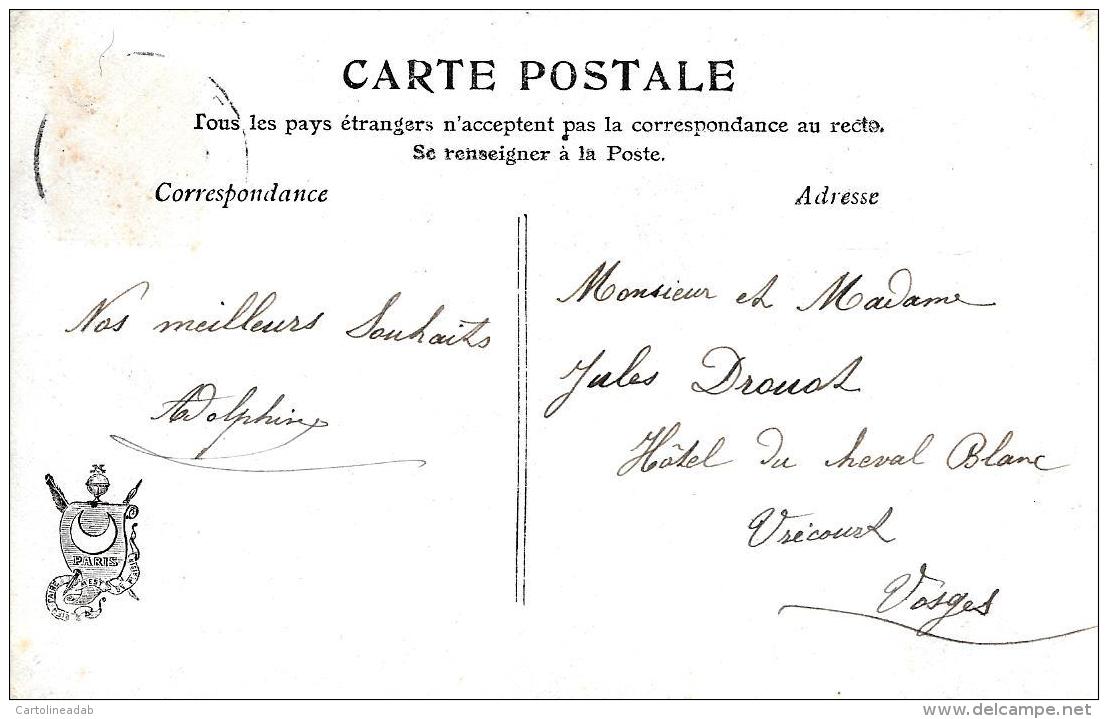 CARTE POSTALE
Tous les pays étrangers n'acceptent pas la correspondance au recto.
Se renseigner à la Poste.
Correspondance
Adresse
Nos meilleurs Souhaits
Adolphine
Monsieur et Madame
Jules Drouot
Hôtel du cheval Blanc
Vrécourt
Vosges
PARIS
Cartolineadab
delcampe.net